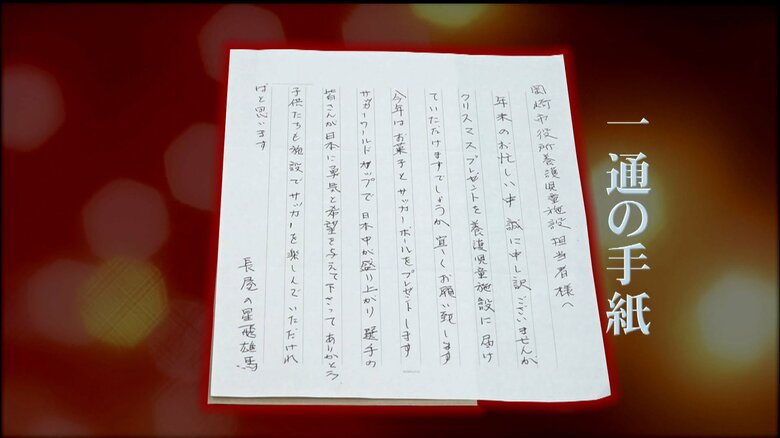 一通の手紙
岡崎市役所養護児童施設担当者様へ
年末のお忙しい中 誠に申し訳ございませんが
クリスマスプレゼントを養護児童施設に届け
ていただけますでしょうか 宜しくお願い致します
今年はお菓子とサッカーボールをプレゼントします
サッカーワールドカップで日本中が盛り上がり 選手の
皆さんが日本に勇気と希望を与えて下さってありがとう
子供たちも施設でサッカーを楽しんでいただけれ
ばと思います
長屋の星飛雄馬